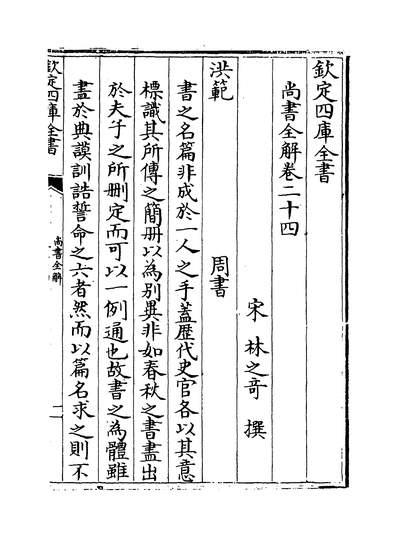 欽定四庫全書
尚書全解卷二十四
宋 林之竒 撰
洪範 周書
書之名篇非成於一人之手蓋歴代史官各以其意
標識其所傳之簡冊以為別異非如春秋之書盡出
於夫子之所刪定而可以一例通也故書之為體雖
盡於典謨訓誥誓命之六者然而以篇名求之則不
欽定四庫全書
尚書全解